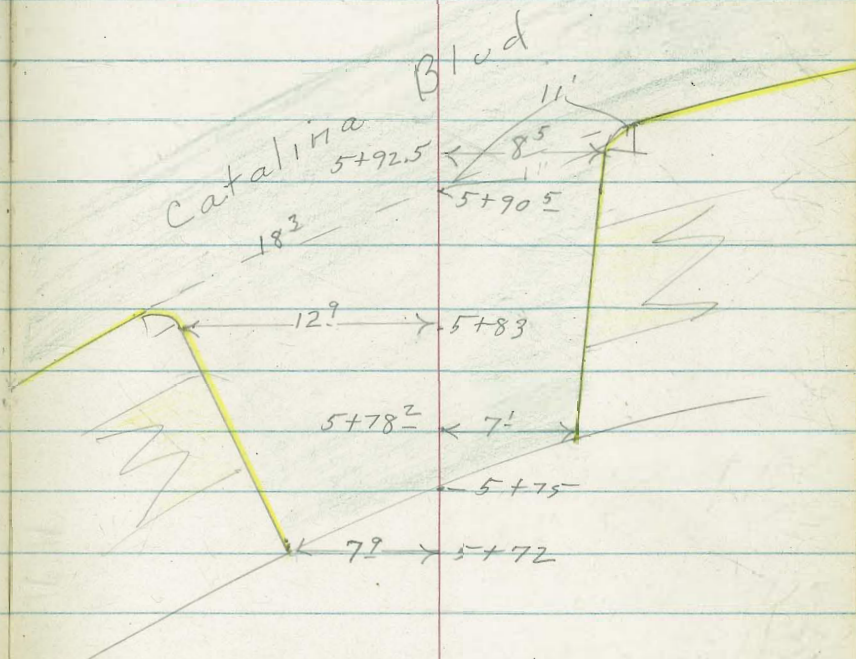 Catalina Blvd
11'
5+92.5 8⁵
5+90⁵
18³
12⁹ 5+83
5+78² 7¹
5+75
7⁹ 5+72